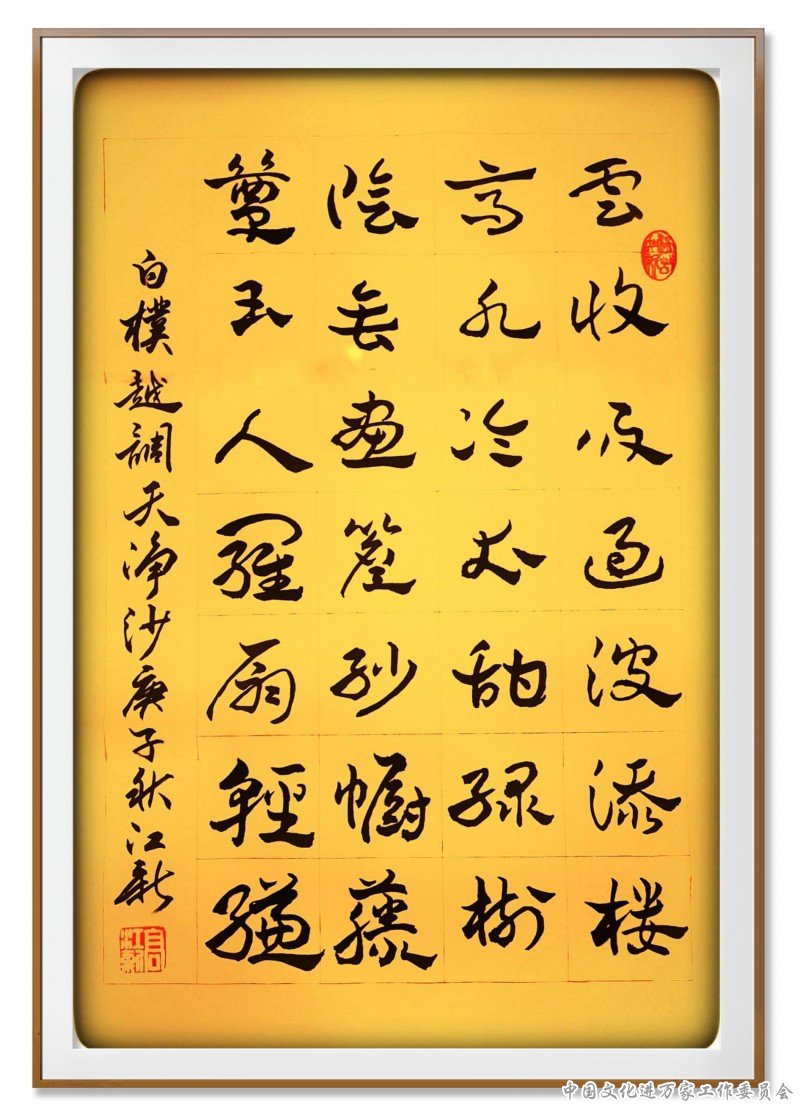 雲收雨過波添楼
高水冷瓜甜緑樹
陰垂畫簷紗幮藤
簟玉人羅扇輕縑
白樸越調天淨沙庚子秋江新
中国文化进万家工作委员会